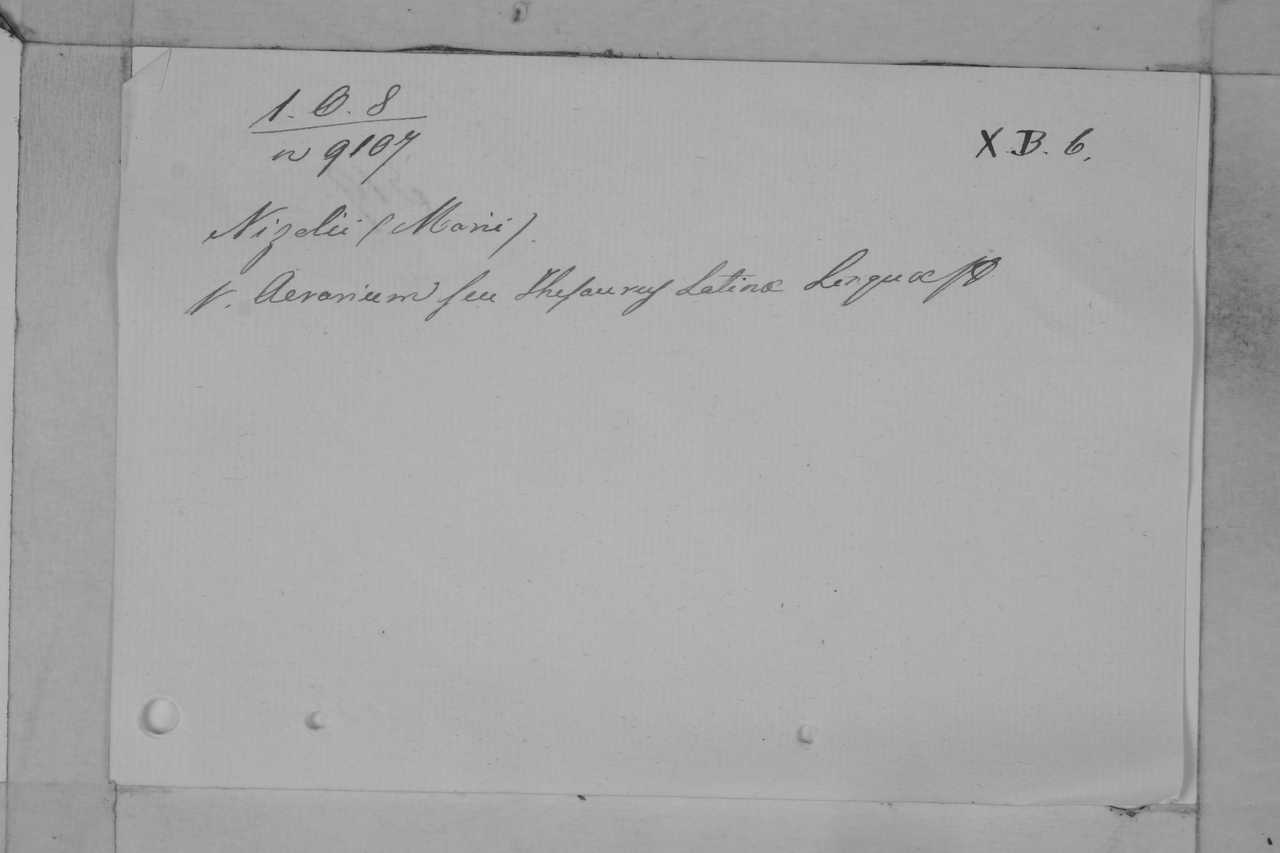 1. B. 8
n 9107
X. B. 6.
Nizolii (Marii).
V. Aerarium seu Thesaurus Latinæ Linguæ